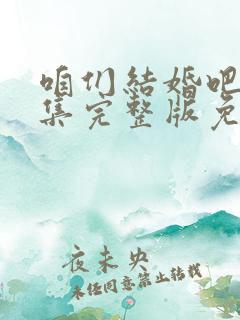 咱们结婚吧
集完整版免
夜未央
未经同意禁止转载